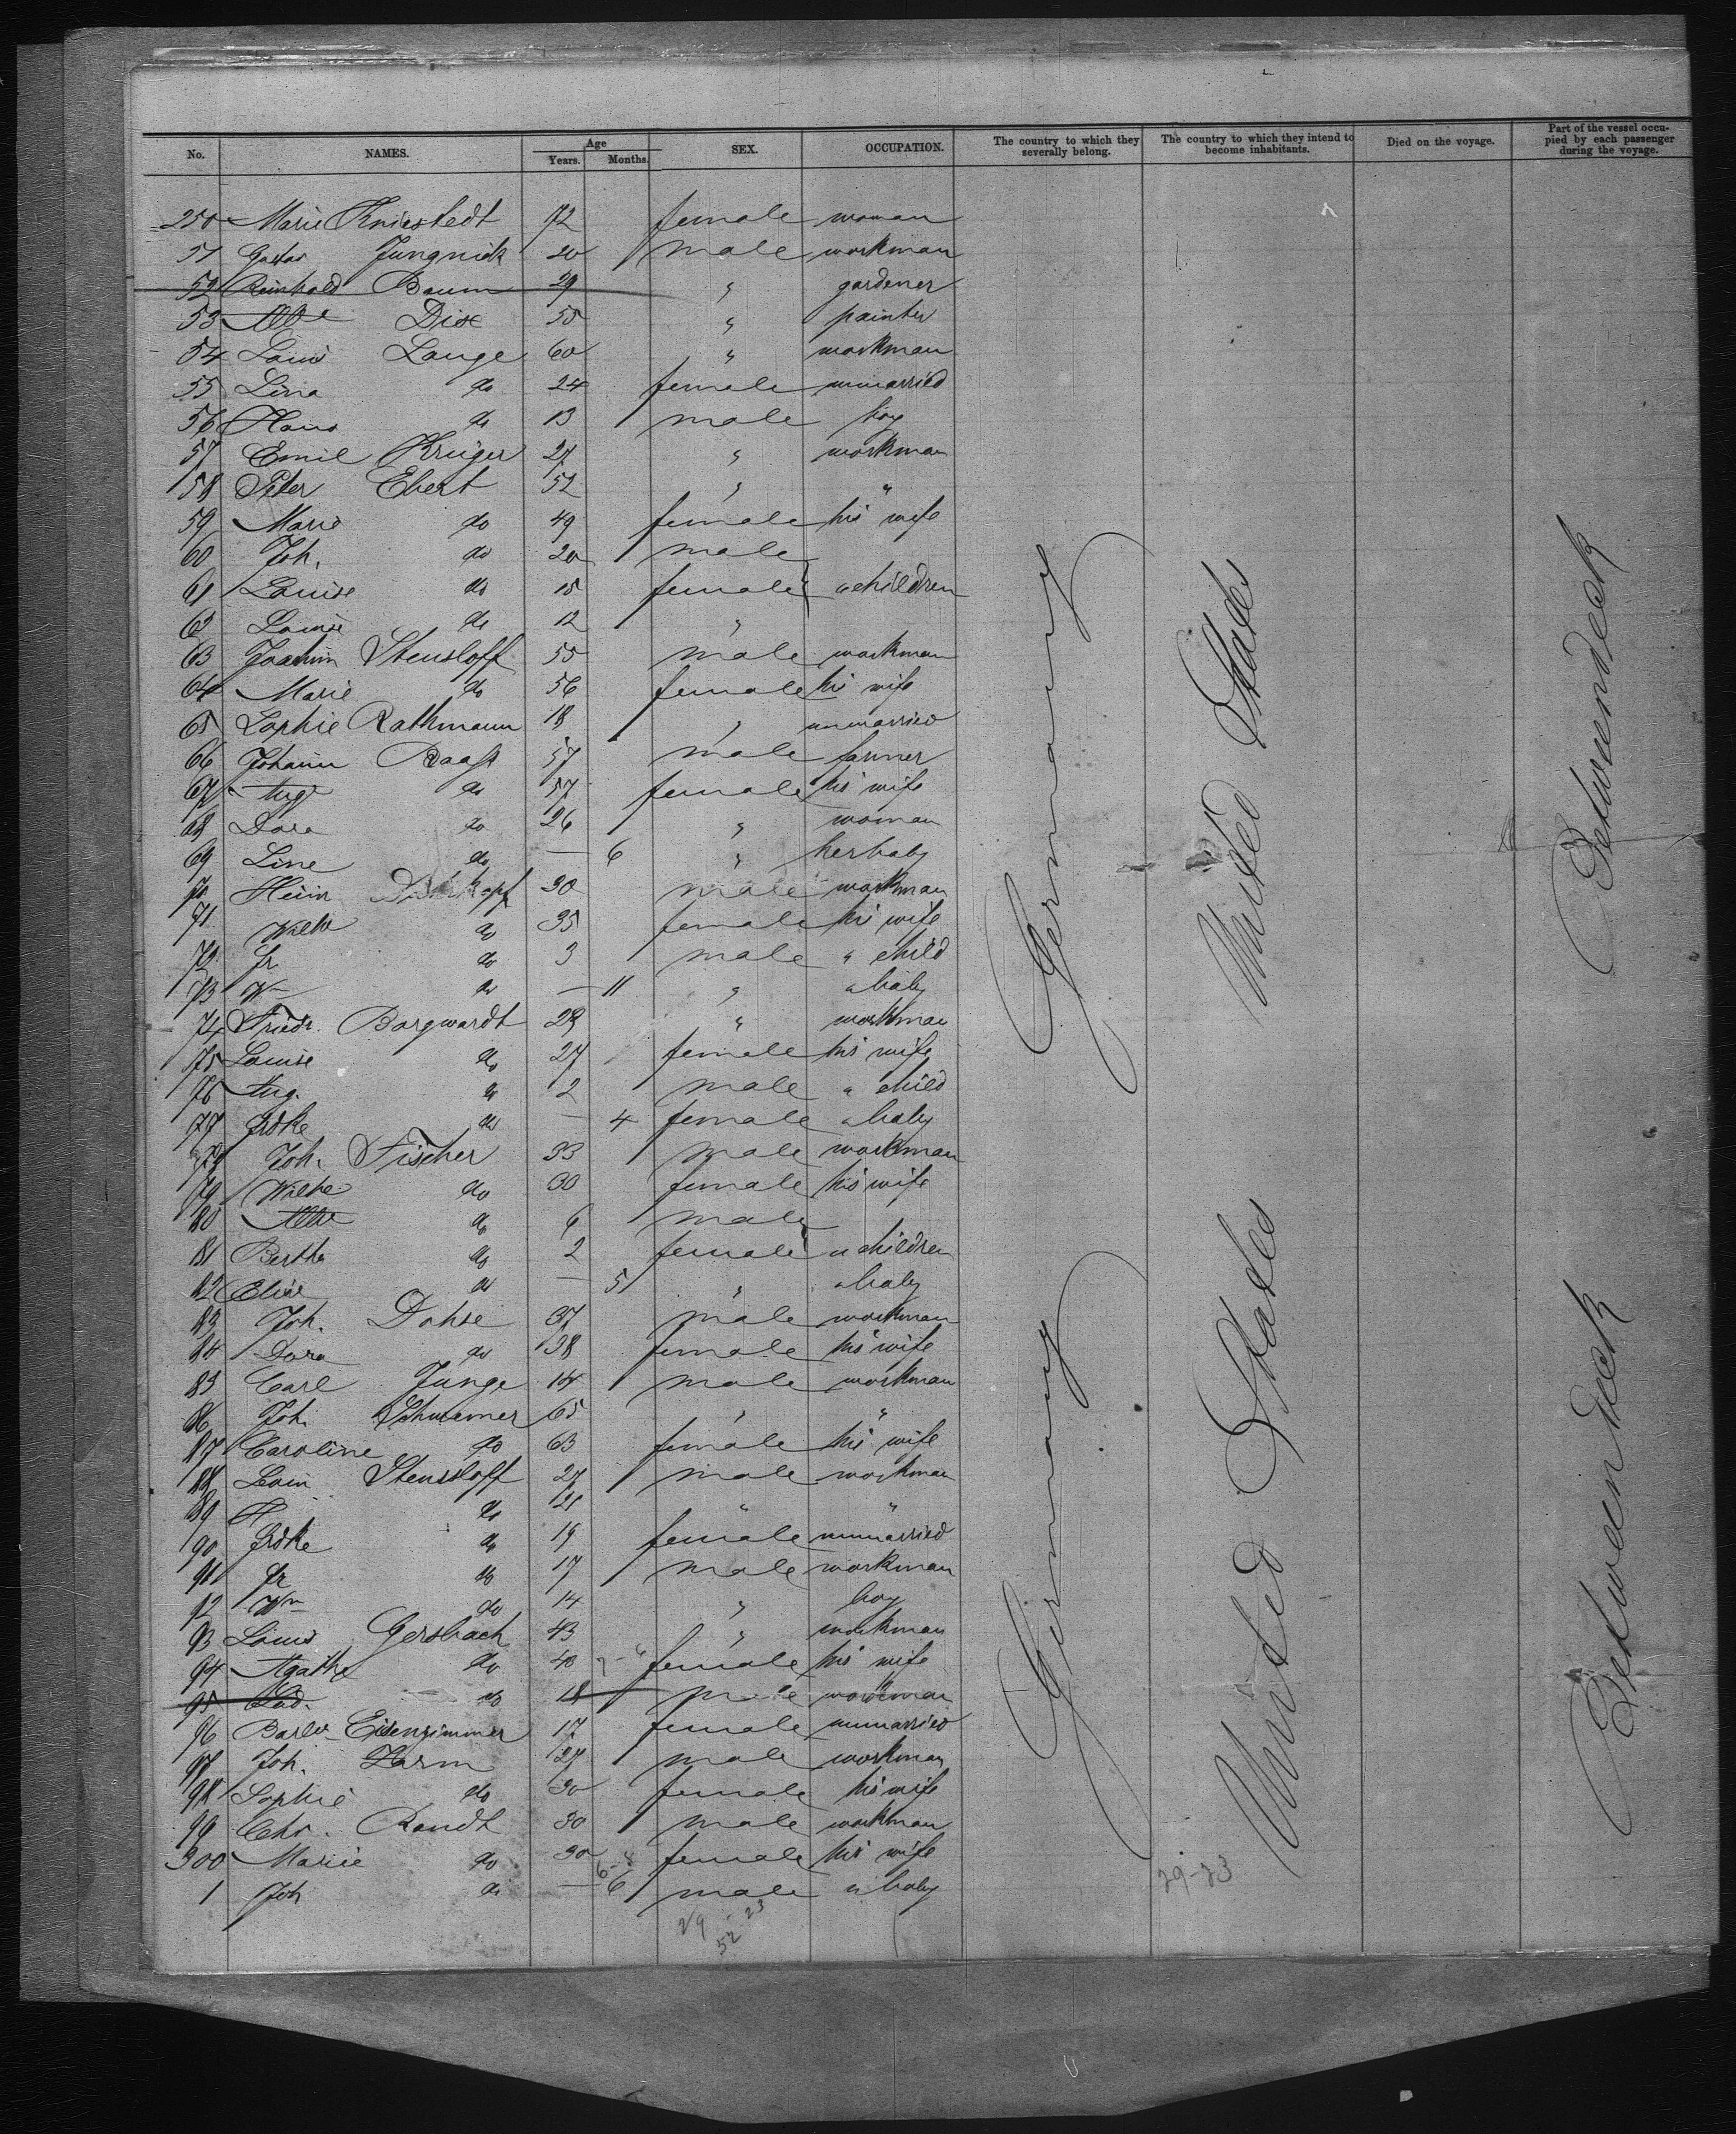 No. NAMES. Age Years. Months. SEX. OCCUPATION. The country to which they severally belong. The country to which they intend to become inhabitants. Died on the voyage. Part of the vessel occupied by each passenger during the voyage.
250 Marie Kniestedt 72 female woman
51 Gustav Jungnick 20 male workman
52 Reinhold Baum 29 " gardener
53 Dise 55 " painter
54 Louis Lange 60 " workman
55 Lina do 24 female unmarried
56 Hans do 13 male boy
57 Emil Krüger 27 " workman
58 Peter Ebert 52 " "
59 Marie do 49 female his wife
60 Joh. do 20 male
61 Louise do 15 female " children
62 Louise do 12 "
63 Joachim Stensloff 55 male workman
64 Marie do 56 female his wife
65 Sophie Rathmann 18 " unmarried
66 Johann Raasf 57 male farmer
67 Aug. do 57 female his wife
68 Dora do 26 " woman
69 Line do — 6 " her baby
70 Heinr 30 male workman
71 Wilhe do 35 female his wife
72 Fr. do 3 male " child
73 Wm do — 11 " " baby
74 Friedr. Borgwardt 28 " workman
75 Louise do 27 female his wife
76 Aug. do 2 male " child
77 Frdke do — 4 female " baby
78 Joh. Fischer 33 male workman
79 Wilhe do 30 female his wife
80 do 6 male
81 Bertha do 2 female " children
82 Elise do — 5 " " baby
83 Joh. Dohse 37 male workman
84 Dora do 38 female his wife
85 Carl Junge 14 male workman
86 Joh. Schwemer 65 " "
87 Caroline do 63 female his wife
88 Louis Stensloff 27 male workman
89 H do 21 " "
90 Frdke do 19 female unmarried
91 Fr do 17 male workman
92 Wm do 14 " boy
93 Louis Gersbach 43 " workman
94 Agathe do 40 female his wife
95 Lud. do 18 male workman
96 Barb. Eisenzimmer 17 female unmarried
97 Joh. Larm 27 male workman
98 Sophie do 30 female his wife
99 Chr. Randt 30 male workman
300 Marie do 30 female his wife
1 Joh do — 6 male " baby
Germany
Germany
United States
United States
Betweendeck
Betweendeck
29-23
29-23
52